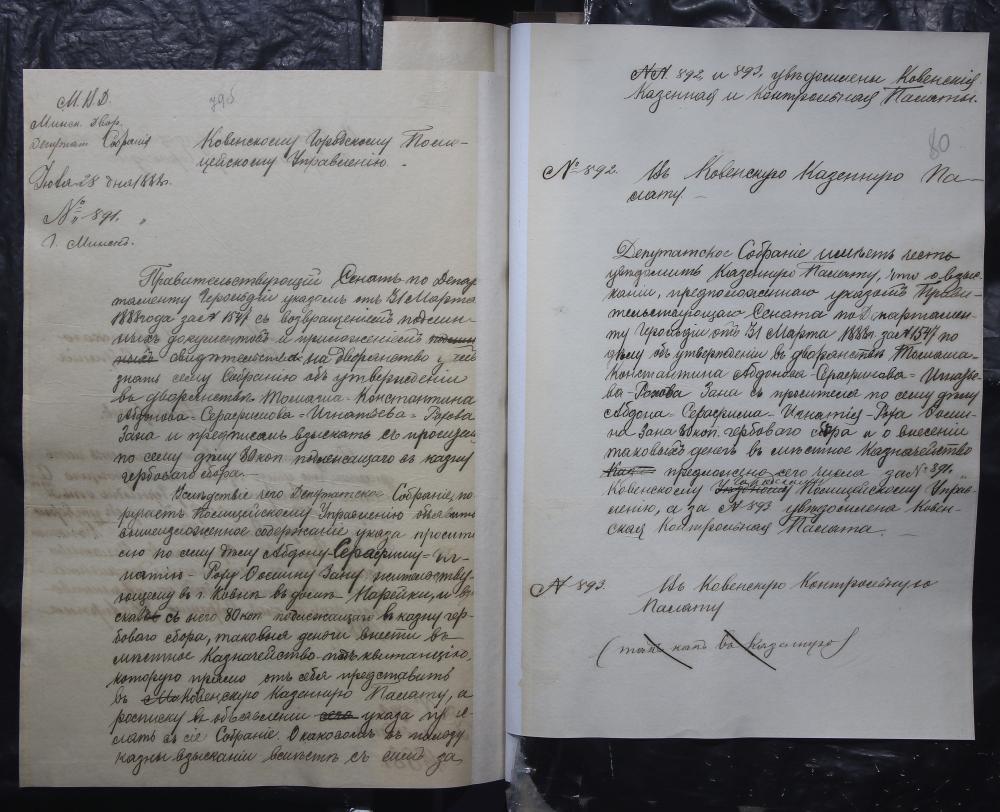 М.В.Д.
Минск. Двор.
Депутат. Собранія
Іюня 28 дня 1888 г.
№ 891.
г. Минскъ.
795
Ковенскому Городскому Поли-
цейскому Управленію.
Правительствующій Сенатъ по Депар
таменту Герольдіи указомъ отъ 31 Марта
1888 года за № 1547 съ возвращеніемъ подлин-
ныхъ документовъ и приложеній
свидѣтельства на дворянство
знать сему Собранію объ утвержденіи
въ дворянствѣ Томаша-Константина
Абдонова-Серафимова-Игнатьева-Рохова
Зана и предписалъ взыскать съ просит
по сему дѣлу 80 коп. подлежащаго въ казну
гербоваго сбора.
Вслѣдствіе чего Депутатское Собраніе, по
ручаетъ Полицейскому Управленію объявить
вышеизложенное содержаніе указа просит
лю по сему дѣлу Абдону Серафиму-Иг-
натію-Роху Осипину Зану, жительству-
ющему въ г. Ковнѣ въ домѣ Марейки, и взы
скать съ него 80 коп. подлежащаго въ казну гер-
боваго сбора, таковыя деньги внести въ
мѣстное Казначейство квитанцію,
которую прямо отъ себя представить
въ Ковенскую Казенную Палату, а
росписку въ объявленіи указа при
слать въ сіе Собраніе. О каковомъ въ пользу
казны взысканіи вмѣстѣ съ симъ за
№№ 892 и 893, увѣдомлены Ковенскія
Казенная и Контрольная Палаты.
80
№ 892. Въ Ковенскую Казенную Па-
лату.
Депутатское Собраніе имѣетъ честь
увѣдомить Казенную Палату, что о взыс-
каніи, предположеннаго указомъ Прави-
тельствующаго Сената по Департамен-
ту Герольдіи отъ 31 Марта 1888 г. за № 1547 по
дѣлу объ утвержденіи въ дворянствѣ Томаша-
Константина Абдонова-Серафимова-Игнатье-
ва-Рохова Зана съ просителя по сему дѣлу
Абдона-Серафима-Игнатія-Роха Осипи-
на Зана 80 коп. гербоваго сбора и о внесеніи
таковыхъ денегъ въ мѣстное Казначейство
предложено сего числа за № 891.
Ковенскому Городскому Полицейскому Управ-
ленію, а за № 893 увѣдомлена Ковен-
ская Контрольная Палата.
№ 893. Въ Ковенскую Контрольную
Палату
(также какъ въ Казенную)